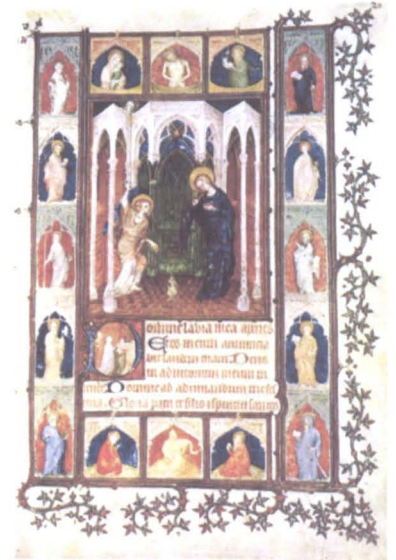 Domine labia mea aperies
Et os meum anuncia
bit laudem tuam Deus
in adiutorium meum in
tende Domine ad adiuuandum me festi
na Gloria patri et filio